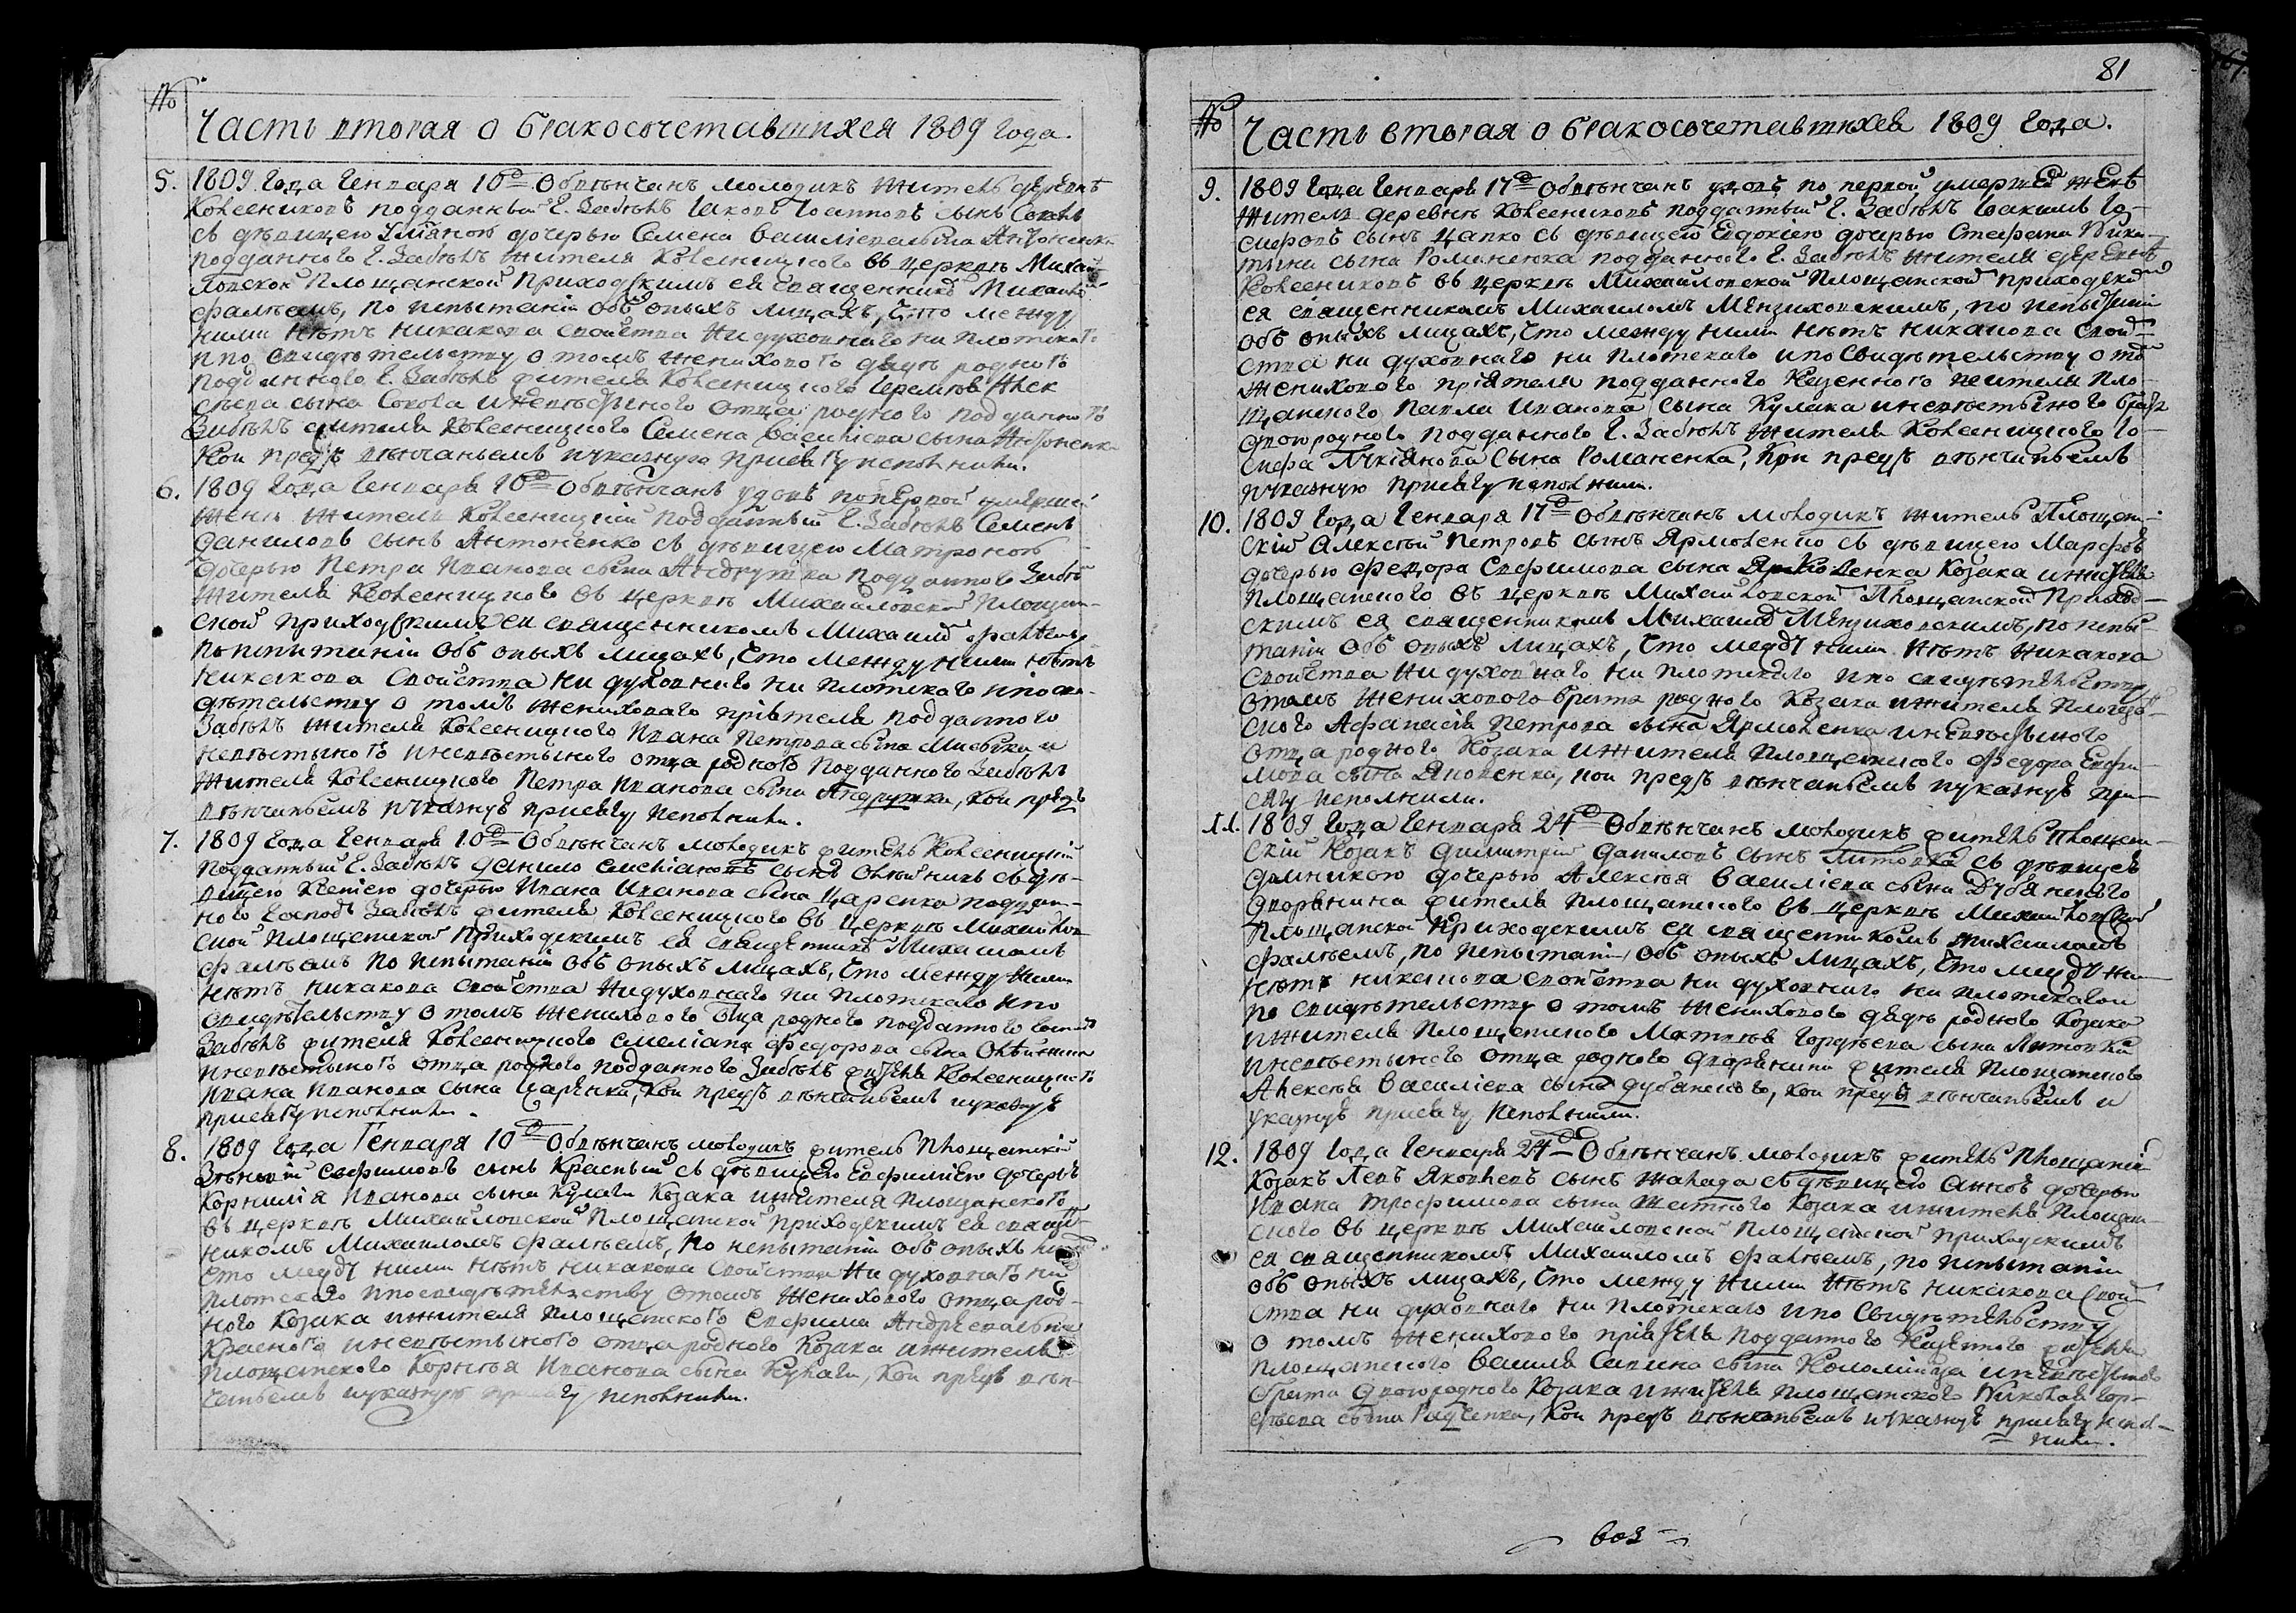 №
Часть вторая о бракосочетавшихся 1809 года.
5. 1809 года Генваря 10го Обвѣнчанъ молодикъ житель деревнѣ
подданный Г. Забѣлъ Іаковъ Іоанновъ сынъ
съ дѣвицею дочерью Семена Василіева сына Антоненка
подданного Г. Забѣлъ жителя въ церквѣ Михай-
ловской Площанской приходскимъ ея священникомъ Михаиломъ
Фалѣемъ, по испытаніи объ оныхъ лицахъ, что между
ними нѣтъ никакова свойства ни духовнаго ни плотскаго
и по свидѣтельству о томъ женихового дядѣ родного
подданного Г. Забѣлъ жителя Іеремѣя
сына и невѣстьиного отца родного подданного
Забѣлъ жителя Семена Василіева сына Антоненка
кои предъ вѣнчаньемъ и указную присягу исполнили.
6. 1809 года Генваря 10го Обвѣнчанъ удовъ по первой умершей
женѣ житель подданный Г. Забѣлъ Семенъ
Даниловъ сынъ Антоненко съ дѣвицею Матроною
дочерью Петра Иванова сына Андрушка подданного Забѣлъ
жителя въ церквѣ Михайловской Площан-
ской приходскимъ ея священникомъ Михаиломъ Фалѣемъ
по испытаніи объ оныхъ лицахъ, что между ними нѣтъ
никакова свойства ни духовнаго ни плотскаго и по сви-
дѣтельству о томъ жениховаго пріятеля подданного
Забѣлъ жителя Ивана Петрова сына и
невѣстьиного отца родного подданного Забѣлъ
жителя Петра Иванова сына Андрушка, кои предъ
вѣнчаньемъ и указную присягу исполнили.
7. 1809 года Генваря 10го Обвѣнчанъ молодикъ житель
подданный Г. Забѣлъ Данило Емеліановъ сынъ Олѣйникъ съ дѣ-
вицею Ксеніею дочерью Ивана Иванова сына Царенка поддан-
ного Господъ Забѣлъ жителя въ церквѣ Михайлов-
ской Площанской приходскимъ ея священникомъ Михаиломъ
Фалѣемъ по испытаніи объ оныхъ лицахъ, что между ними
нѣтъ никакова свойства ни духовнаго ни плотскаго и по
свидѣтельству о томъ женихового отца родного подданного Господъ
Забѣлъ жителя Емеліана Федорова сына Олѣйника
и невѣстьиного отца родного подданного Забѣлъ жителя
Ивана Иванова сына Царенка, кои предъ вѣнчаньемъ и указную
присягу исполнили.
8. 1809 года Генваря 10го Обвѣнчанъ молодикъ житель Площанскій
Зѣновій Евфимовъ сынъ Красный съ дѣвицею Евфиміею дочерью
Корнилія Иванова сына Кулаги Козака и жителя Площанского
въ церквѣ Михайловской Площанской приходскимъ ея священ-
никомъ Михаиломъ Фалѣемъ, по испытаніи объ оныхъ
что между ними нѣтъ никакова свойства ни духовнаго ни
плотскаго и по свидѣтельству о томъ женихового отца род-
ного Козака и жителя Площанского Евфима Андрѣева сына
Красного и невѣстьиного отца родного Козака и жителя
Площанского Корнѣя Иванова сына Кулаги, кои предъ вѣн-
чаньемъ и указную присягу исполнили.
81
№
Часть вторая о бракосочетавшихся 1809 года.
9. 1809 года Генваря 17го Обвѣнчанъ удовъ по первой умершей женѣ
житель деревнѣ подданный Г. Забѣлъ Іоакимъ Іо-
сифовъ сынъ Цапко съ дѣвицею Евдокіею дочерью Стефана Ники-
тина сына Романенка подданного Г. Забѣлъ жителя деревнѣ
въ церквѣ Михайловской Площанской приходскимъ
ея священникомъ Михаиломъ Мензиховскимъ, по испытаніи
объ оныхъ лицахъ, что между ними нѣтъ никакова свой-
ства ни духовнаго ни плотскаго и по свидѣтельству о томъ
женихового пріятеля подданного Казенного жителя Пло-
щанского Павла Иванова сына Кулака и невѣстьиного брата
двоюродного подданного Г. Забѣлъ жителя Іо-
сифа Лукіянова сына Романенка, кои предъ вѣнчаньемъ
и указную присягу исполнили.
10. 1809 года Генваря 17го Обвѣнчанъ молодикъ житель Площан-
скій Алексѣй Петровъ сынъ Ярмоленко съ дѣвицею Марфою
дочерью Федора Евфимова сына Козака и жителя
Площанского въ церквѣ Михайловской Площанской приход-
скимъ ея священникомъ Михаиломъ Мензиховскимъ, по испы-
таніи объ оныхъ лицахъ, что между ними нѣтъ никакова
свойства ни духовнаго ни плотскаго и по свидѣтельству
о томъ жениховаго брата родного Козака и жителя Площан-
ского Афанасія Петрова сына Ярмоленка и невѣстьиного
отца родного Козака и жителя Площанского Федора Евфи-
мова сына Яковенка, кои предъ вѣнчаньемъ и указную при-
сягу исполнили.
11. 1809 года Генваря 24го Обвѣнчанъ молодикъ житель Площан-
скій Козакъ Димитрій Даниловъ сынъ Литовка съ дѣвицею
Домникою дочерью Алексѣя Василіева сына Дубянского
дворянина жителя Площанского въ церквѣ Михайловской
Площанской приходскимъ ея священникомъ Михаиломъ
Фалѣемъ, по испытаніи объ оныхъ лицахъ, что между ни-
нѣтъ никакова свойства ни духовнаго ни плотскаго и
по свидѣтельству о томъ жениховаго дядѣ родного Козака
и жителя Площанского Матвѣя Гордѣева сына Литовки
и невѣстьиного отца родного дворянина жителя Площанского
Алексѣя Василіева сына Дубянского, кои предъ вѣнчаньемъ и
указную присягу исполнили.
12. 1809 года Генваря 24го Обвѣнчанъ молодикъ житель Площанскій
Козакъ Левъ Яковлевъ сынъ съ дѣвицею Анною дочерью
Ивана Трофимова сына Козака и жителя Площан-
ского въ церквѣ Михайловской Площанской приходскимъ
ея священникомъ Михаиломъ Фалѣемъ, по испытаніи
объ оныхъ лицахъ, что между ними нѣтъ никакова свой-
ства ни духовнаго ни плотскаго и по свидѣтельству
о томъ жениховаго пріятеля подданного Казенного жителя
Площанского Василя Савина сына Коломійца и невѣстьиного
брата двоюродного Козака и жителя Площанского Николая Гор-
дѣева сына Радченка, кои предъ вѣнчаньемъ и указную присягу испол-
нили.